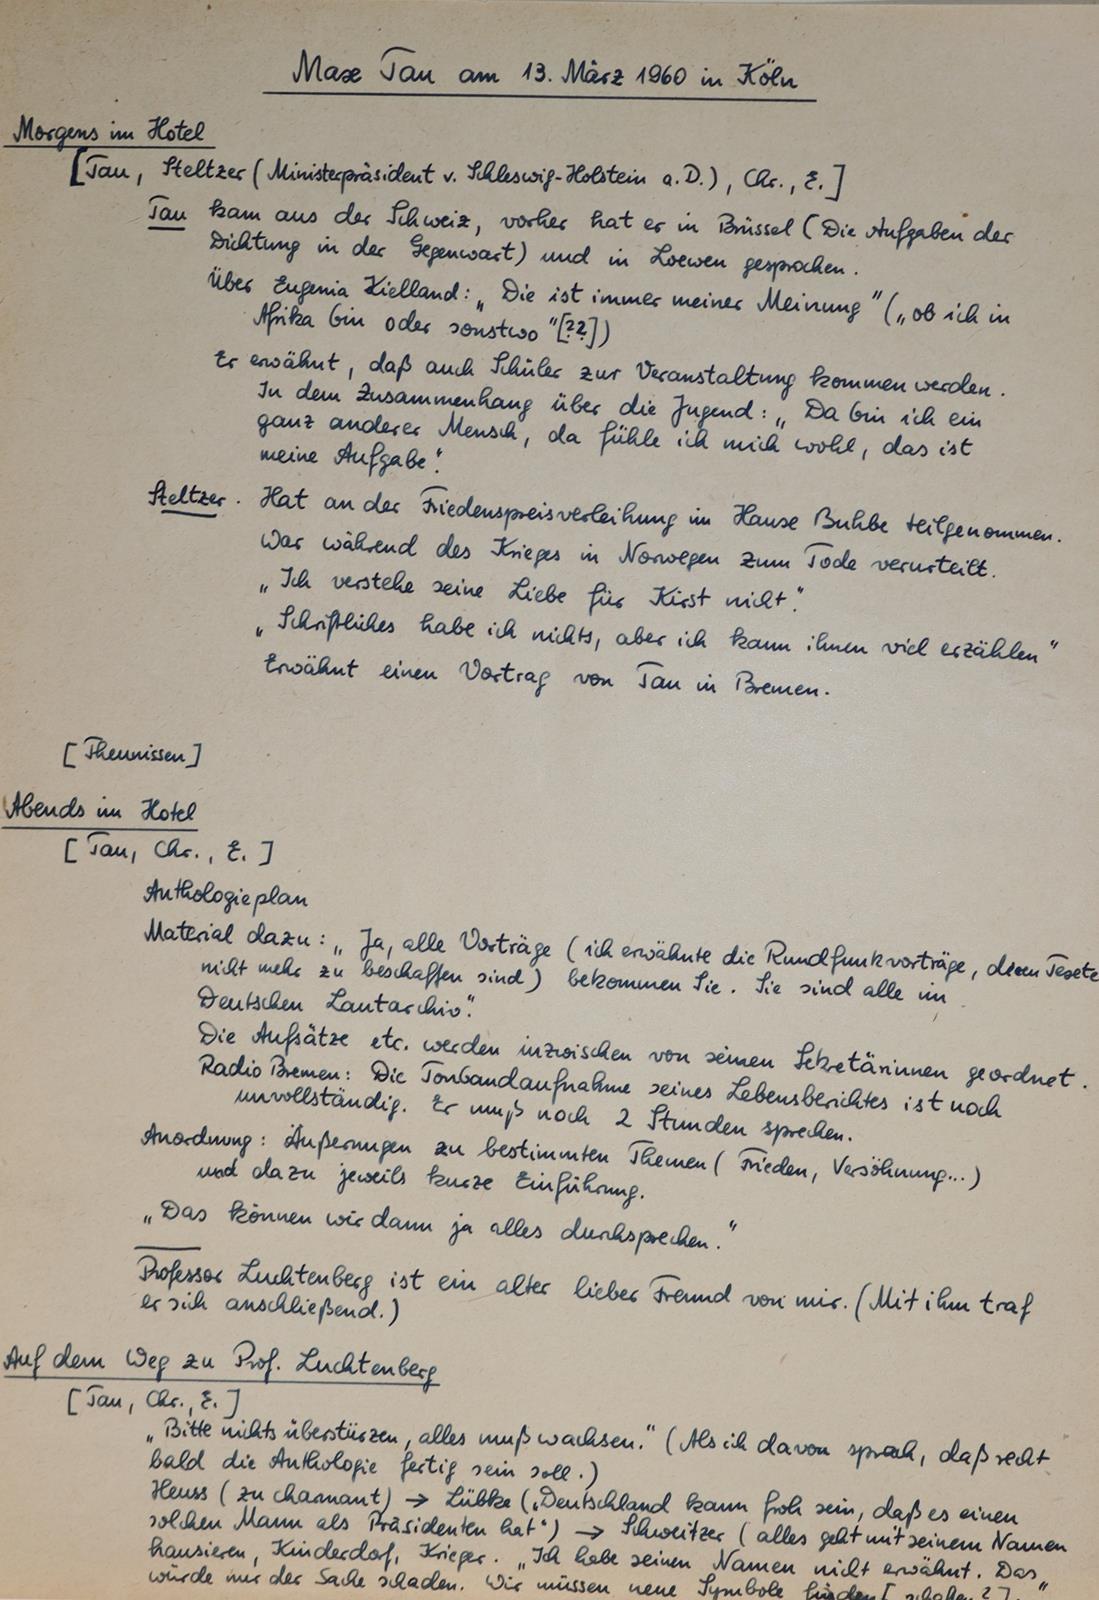 Max Tau am 13. März 1960 in Köln
Morgens im Hotel
[Tau, Steltzer (Ministerpräsident v. Schleswig-Holstein a.D.), Chr., E.]
Tau kam aus der Schweiz, vorher hat er in Brüssel (Die Aufgaben der
Dichtung in der Gegenwart) und in Loewen gesprochen.
Über Eugenia Kielland: „Die ist immer meiner Meinung" („ob ich in
Afrika bin oder sonstwo"[??])
Er erwähnt, daß auch Schüler zur Veranstaltung kommen werden.
In dem Zusammenhang über die Jugend: „Da bin ich ein
ganz anderer Mensch, da fühle ich mich wohl, das ist
meine Aufgabe".
Steltzer. Hat an der Friedenspreisverleihung im Hause Buhbe teilgenommen.
War während des Krieges in Norwegen zum Tode verurteilt.
„Ich verstehe seine Liebe für Kirst nicht".
„Schriftliches habe ich nichts, aber ich kann ihnen viel erzählen"
Erwähnt einen Vortrag von Tau in Bremen.
[Theunissen]
Abends im Hotel
[Tau, Chr., E.]
Anthologieplan
Material dazu: „Ja, alle Vorträge (ich erwähnte die Rundfunkvorträge, deren Texte
nicht mehr zu beschaffen sind) bekommen Sie. Sie sind alle im
Deutschen Lautarchiv".
Die Aufsätze etc. werden inzwischen von seinen Sekretärinnen geordnet.
Radio Bremen: Die Tonbandaufnahme seines Lebensberichtes ist noch
unvollständig. Er muß noch 2 Stunden sprechen.
Anordnung: Äußerungen zu bestimmten Themen (Frieden, Versöhnung...)
und dazu jeweils kurze Einführung.
„Das können wir dann ja alles durchsprechen."
Professor Luchtenberg ist ein alter lieber Freund von mir. (Mit ihm traf
er sich anschließend.)
Auf dem Weg zu Prof. Luchtenberg
[Tau, Chr., E.]
„Bitte nichts überstürzen, alles muß wachsen." (Als ich davon sprach, daß recht
bald die Anthologie fertig sein soll.)
Heuss (zu charmant) → Lübke („Deutschland kann froh sein, daß es einen
solchen Mann als Präsidenten hat") → Schweitzer (alles geht mit seinem Namen
hausieren, Kinderdorf, Krieger. „Ich habe seinen Namen nicht erwähnt. Das
würde nur der Sache schaden. Wir müssen neue Symbole finden [schaffen?]."